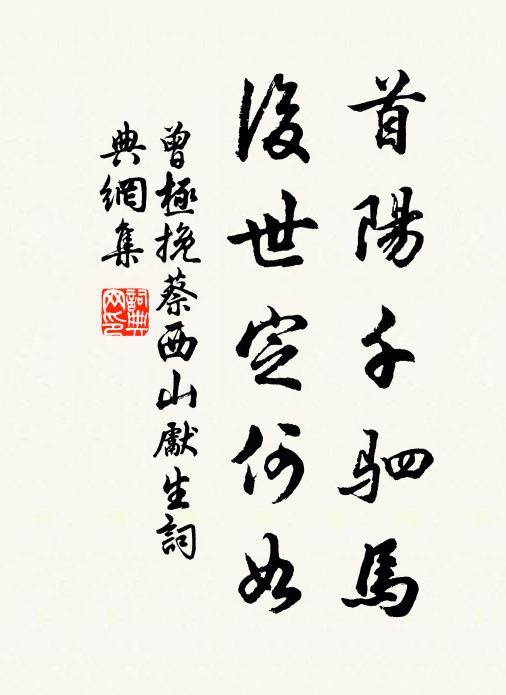 首陽千駟馬
後世定何如
曾極挽蔡西山獻生詞
典網集
詞典網印